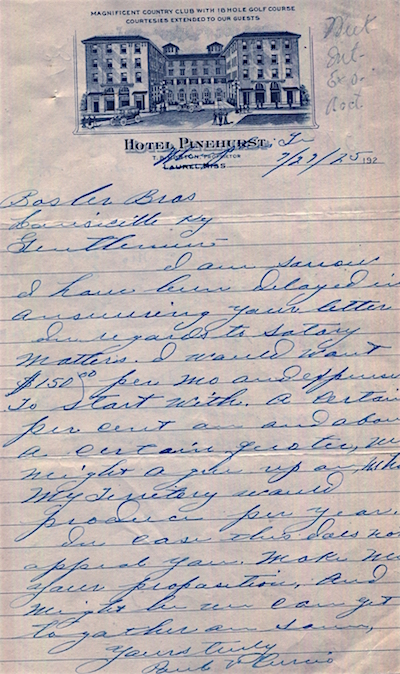 MAGNIFICENT COUNTRY CLUB WITH 18 HOLE GOLF COURSE
COURTESIES EXTENDED TO OUR GUESTS
HOTEL PINEHURST
PROPRIETOR
LAUREL, MISS
7/27/25 192
Bosler Bros
Louisville Ky
Gentlemen
I am sorrow
I have been delayed in
answering your letter
In regards to salary
matters. I would want
$150.00 per mo and expense
To start with. A certain
per cent on and above
a certain quota, we
might agree up on,
My Territory would
produce per year.
In case this does not
appeal you. Make me
your proposition, and
might be we can get
to gather on same,
Yours truly